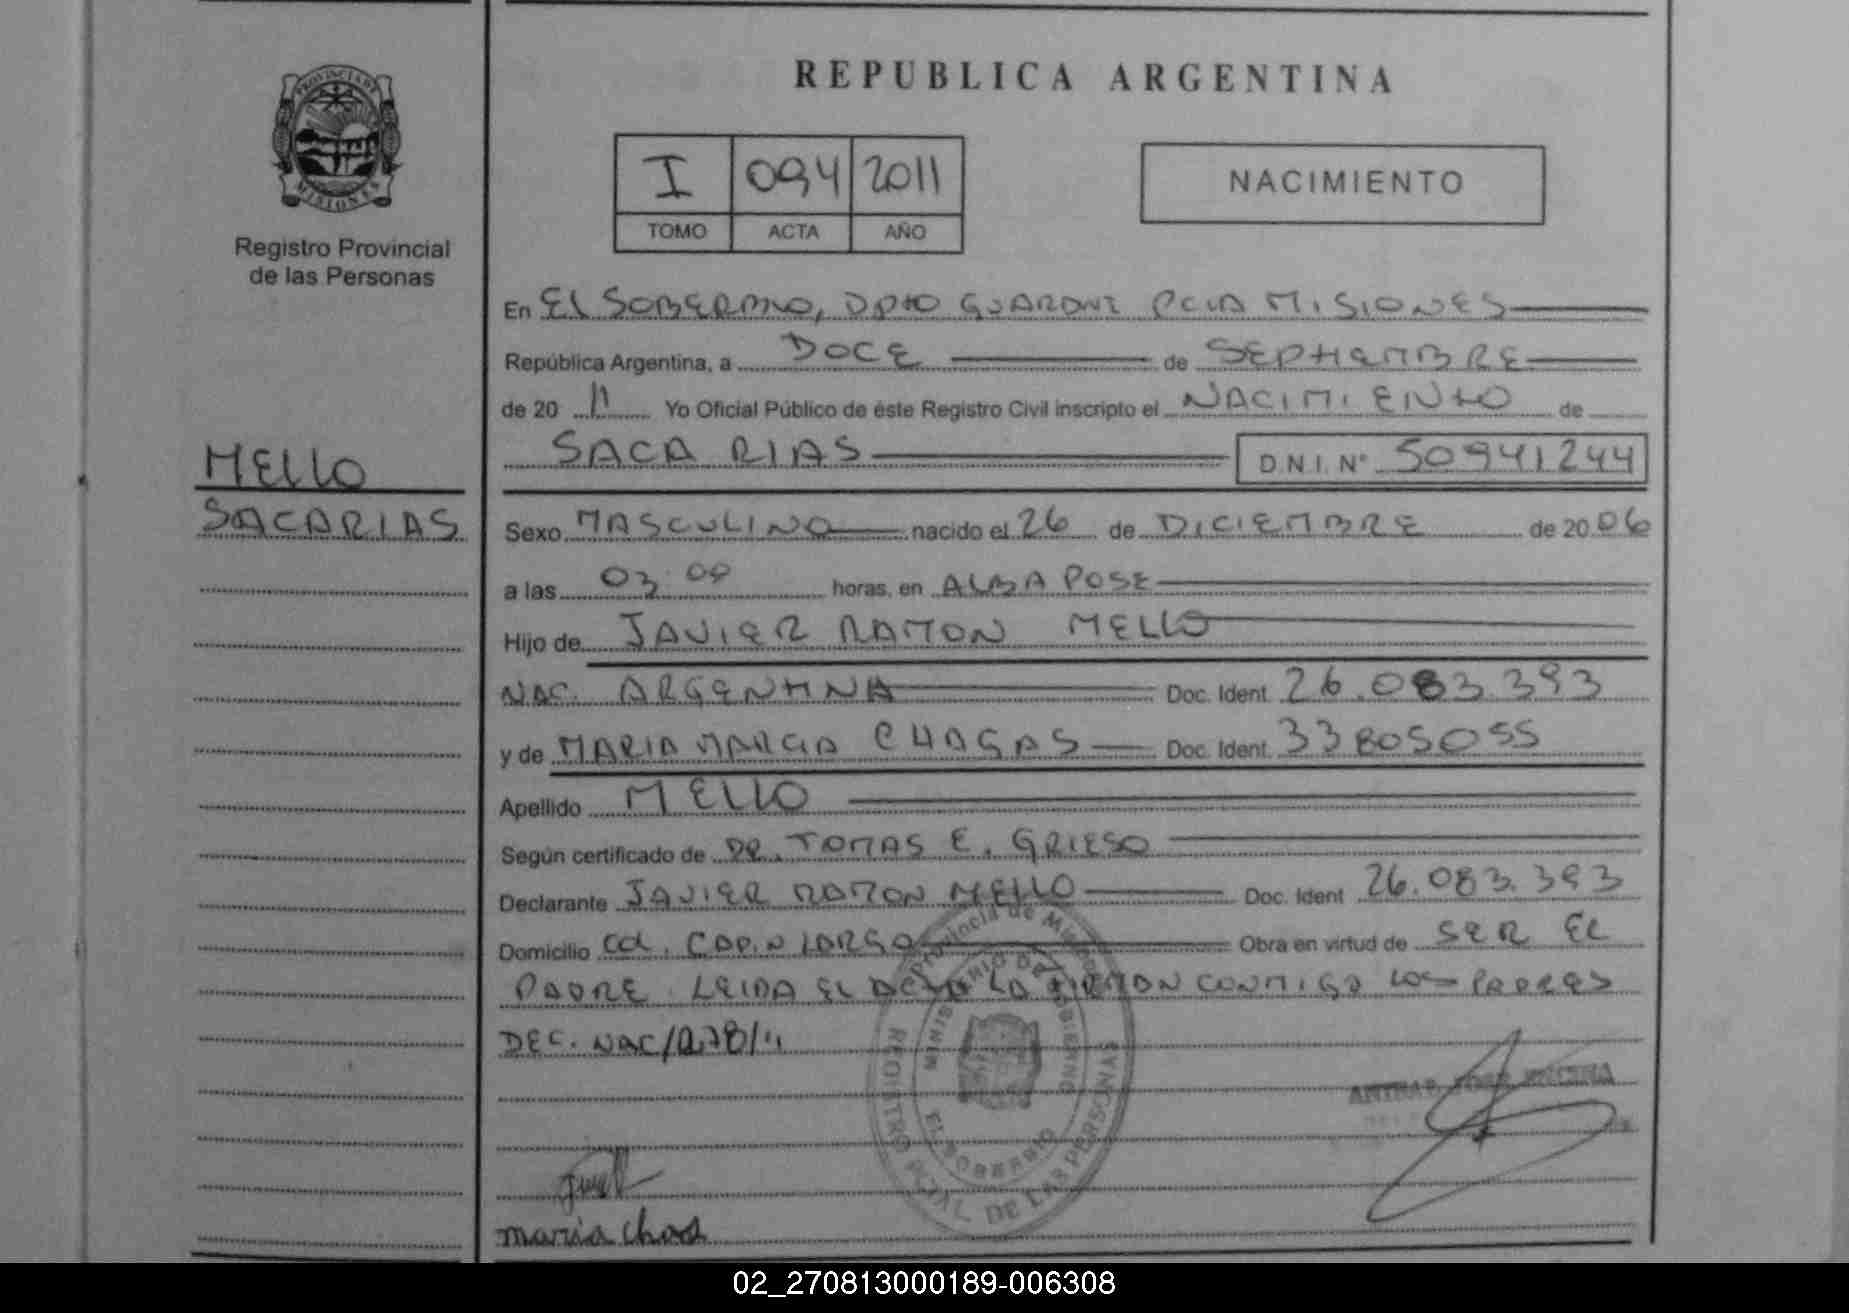 PROVINCIA DE
MISIONES
Registro Provincial
de las Personas
MELLO
SACARIAS
REPUBLICA ARGENTINA
I 094 2011
TOMO ACTA AÑO
NACIMIENTO
En El SOBERBIO, DPTO GUARANI PCIA MISIONES
República Argentina, a DOCE de SEPTIEMBRE
de 20 11 Yo Oficial Público de éste Registro Civil inscripto el NACIMIENTO de
SACARIAS D.N.I. Nº 50941244
Sexo MASCULINO nacido el 26 de DICIEMBRE de 20 06
a las 03:00 horas, en ALBA POSE
Hijo de JAVIER RAMON MELLO
NAC. ARGENTINA Doc. Ident. 26.083.393
y de MARIA MARCIA CHAGAS Doc. Ident. 33805055
Apellido MELLO
Según certificado de DR. TOMAS E. GRIESO
Declarante JAVIER RAMON MELLO Doc. Ident 26.083.393
Domicilio COL. CAPIN LARGO Obra en virtud de SER EL
PADRE LEIDA EL ACTA LA FIRMAN CONMIGO LOS PADRES
DEC. NAC/278/11
Provincia de Misiones
MINISTERIO DE GOBIERNO
EL SOBERBIO
REGISTRO PCIAL. DE LAS PERSONAS
maria chas
02_270813000189-006308